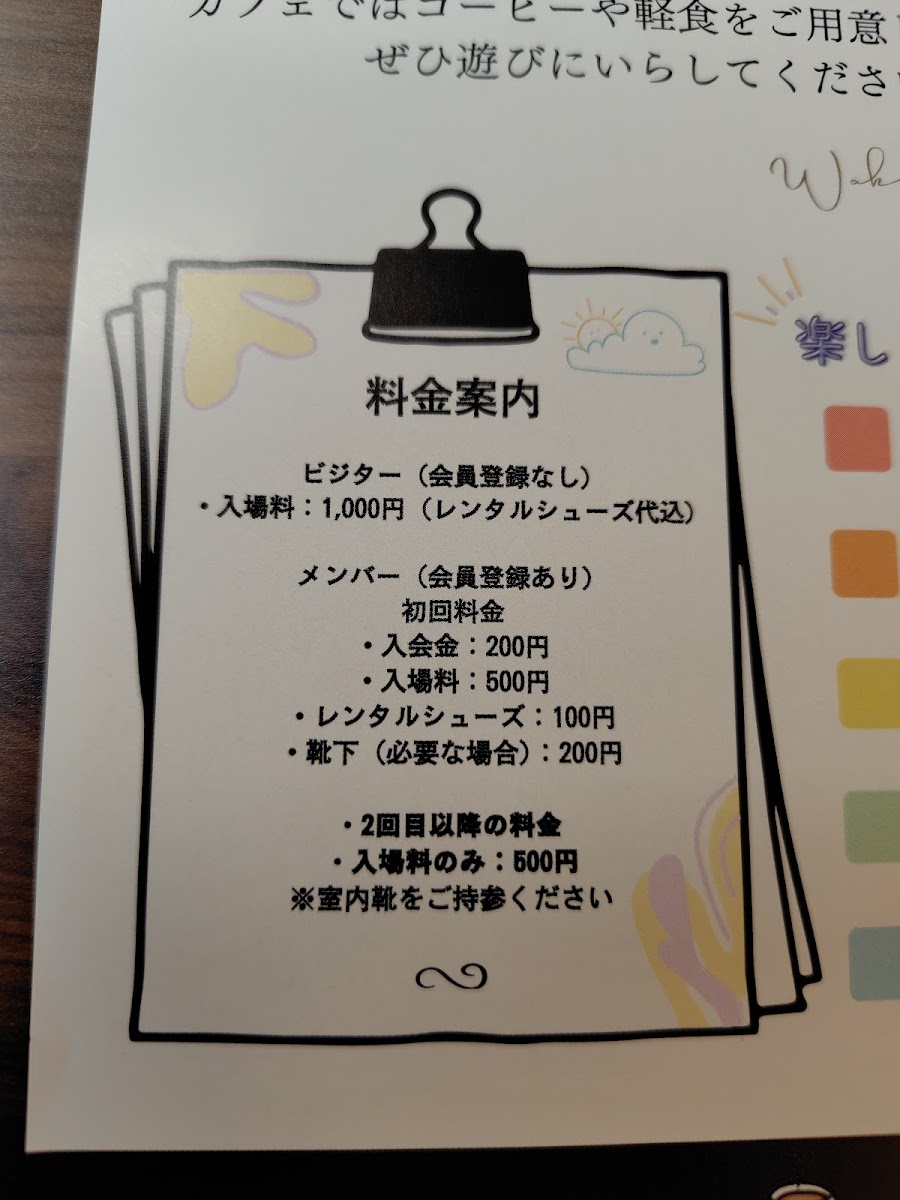 カフェではコーヒーや軽食をご用意
ぜひ遊びにいらしてくださ
料金案内
ビジター（会員登録なし）
・入場料：1,000円（レンタルシューズ代込）
メンバー（会員登録あり）
初回料金
・入会金：200円
・入場料：500円
・レンタルシューズ：100円
・靴下（必要な場合）：200円
・2回目以降の料金
・入場料のみ：500円
※室内靴をご持参ください
楽し